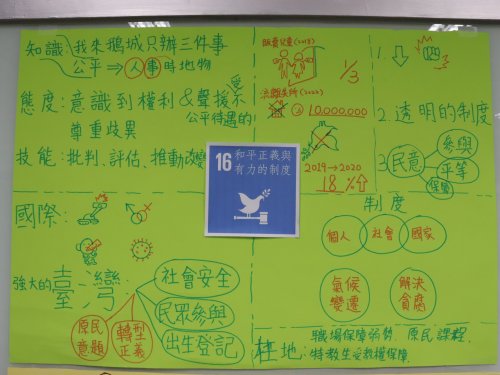 知識:我來鵝城只辦三件事
公平⇒人事時地物
態度:意識到權利&聲援不
受
公平待遇的
尊重歧異
技能:批判、評估、推動改變
販賣兒童(2018)
1/3
(2022)
10.000.000
2019→2020
18%↑
1.↓
2.透明的制度
3
民意
參與
平等
保障
16 和平正義與
有力的制度
國際:
強大的臺灣:
社會安全
民眾參與
出生登記
原民
意題
轉型
正義
制度
個人
社會
國家
氣候
變遷
解決
貪腐
在地:
職場保障弱勢.原民課程.
特教生受教權保障.